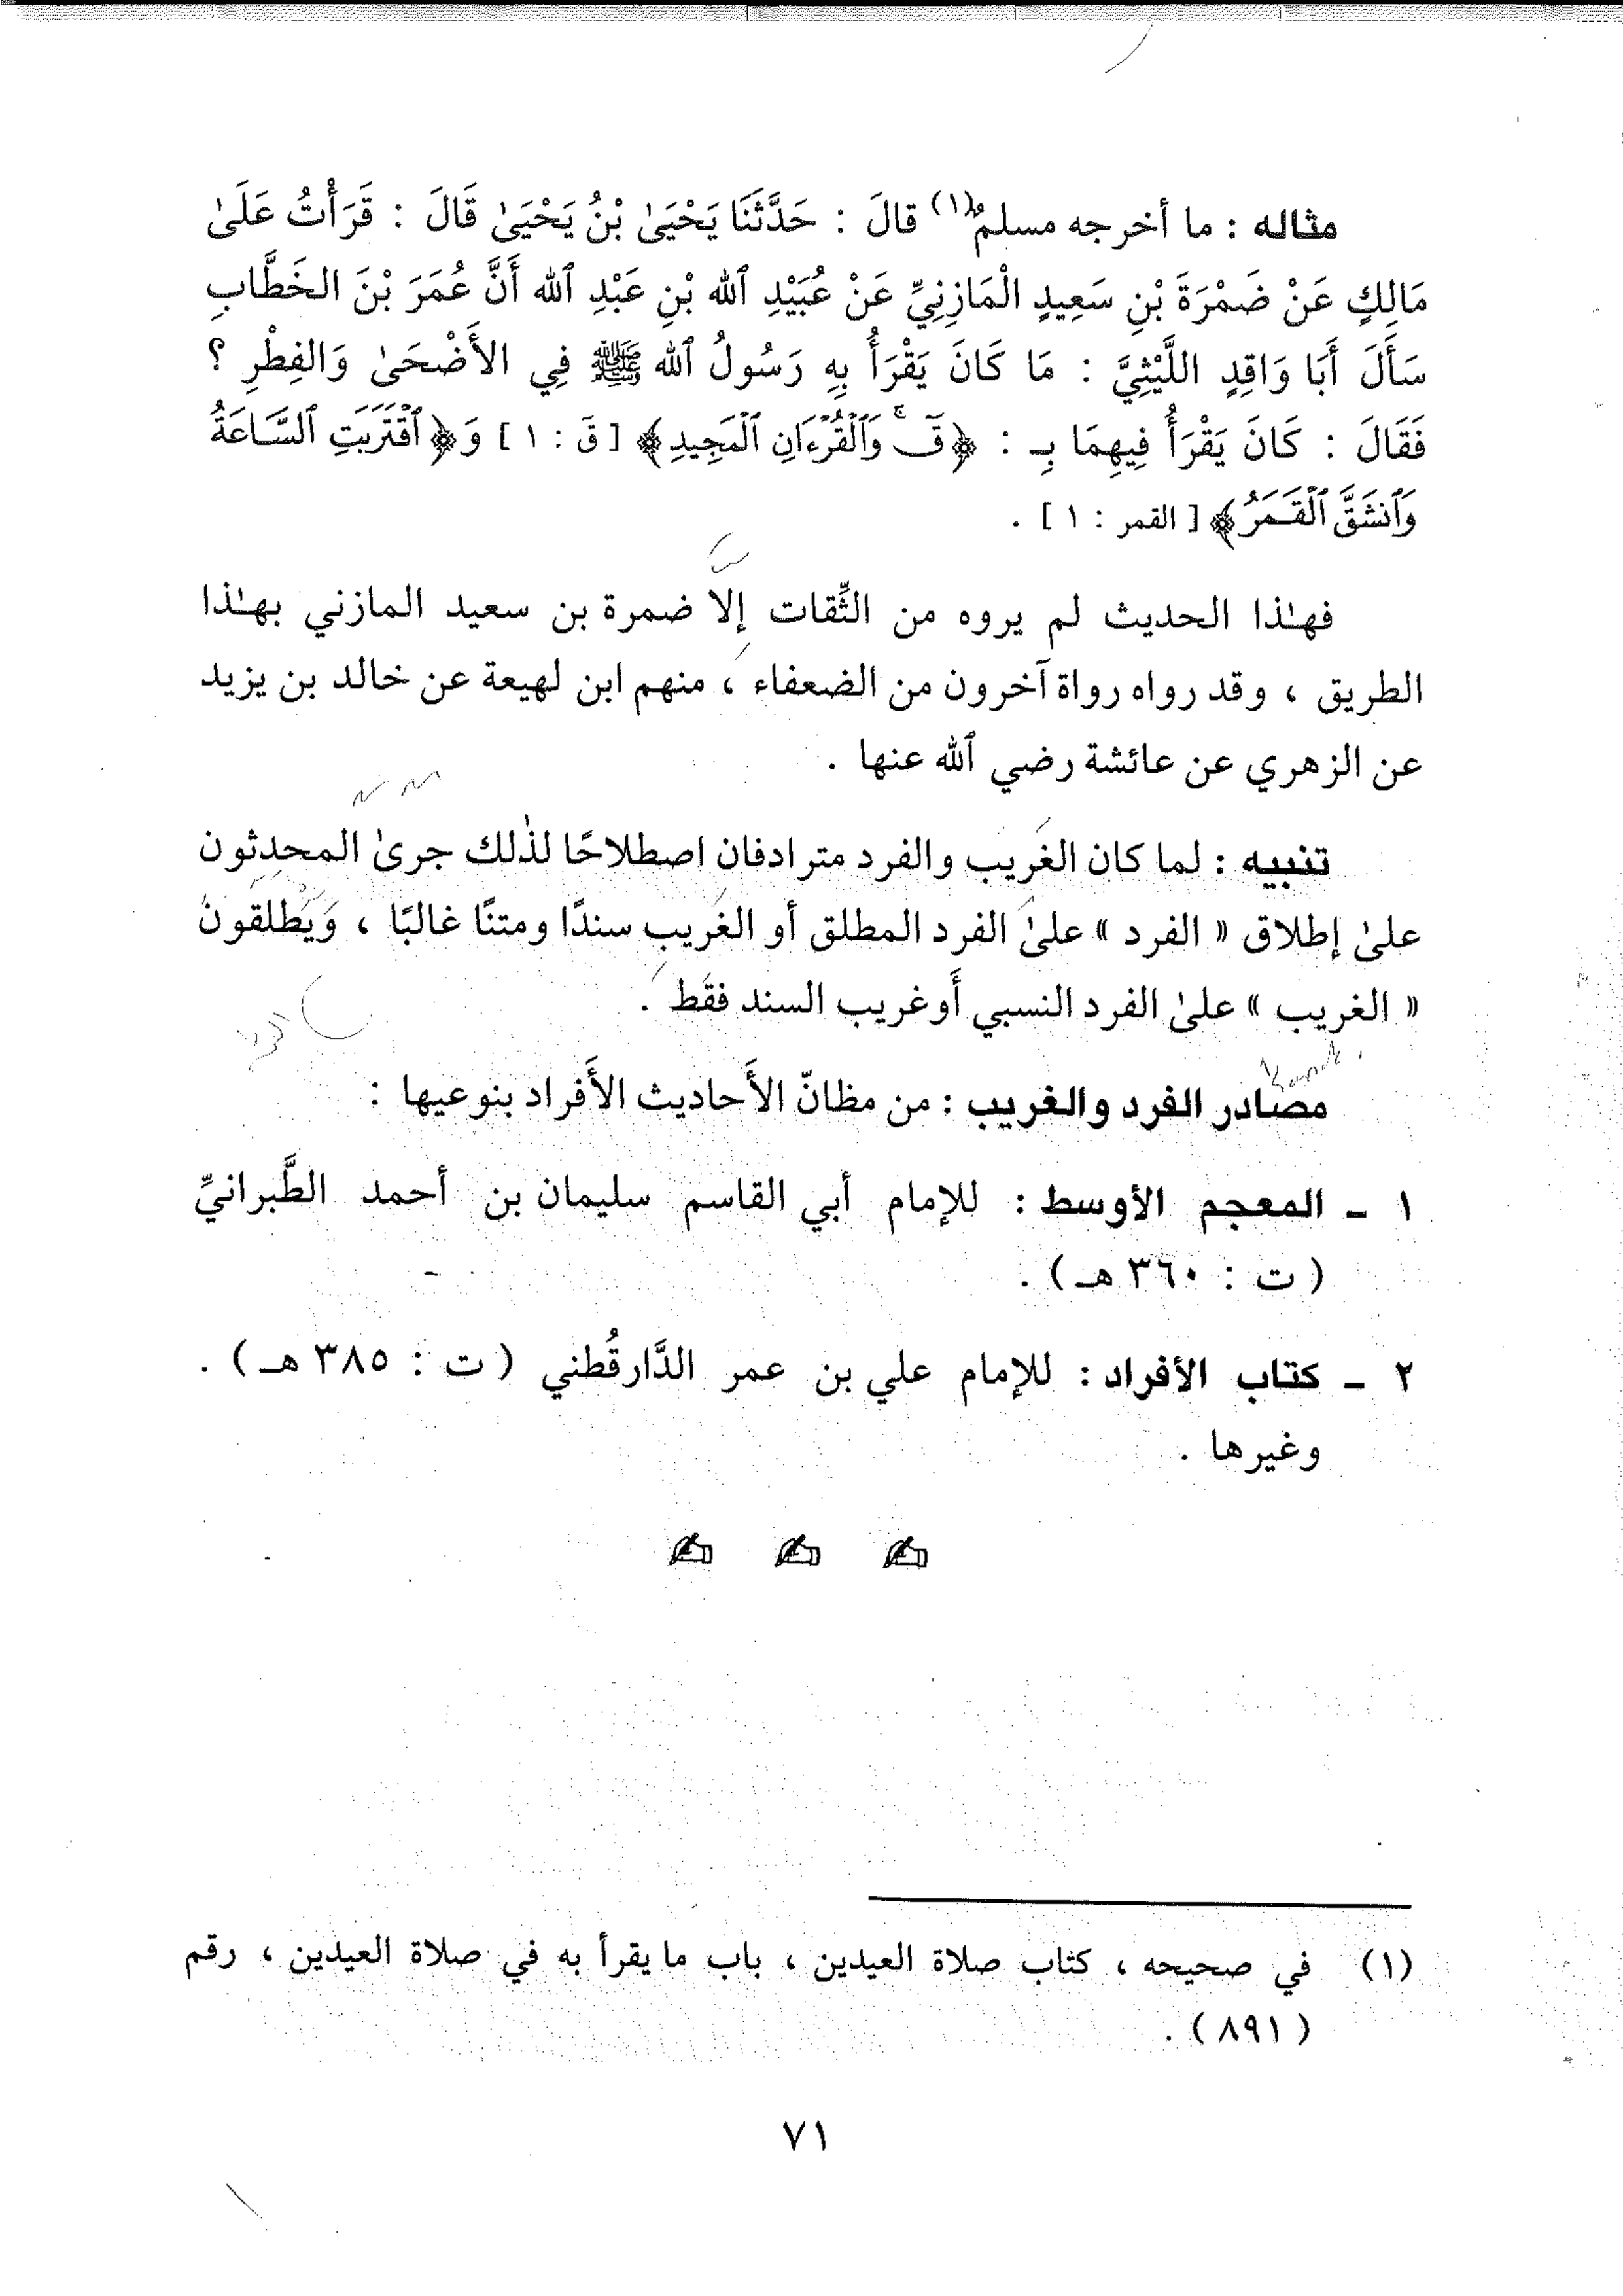 مثاله : ما أخرجه مسلمٌ(١) قالَ : حَدَّثَنَا يَحْيَىٰ بْنُ يَحْيَىٰ قَالَ : قَرَأْتُ عَلَىٰ
مَالِكٍ عَنْ ضَمْرَةَ بْنِ سَعِيدٍ الْمَازِنِيِّ عَنْ عُبَيْدِ ٱلله بْنِ عَبْدِ ٱلله أَنَّ عُمَرَ بْنَ الخَطَّابِ
سَأَلَ أَبَا وَاقِدٍ اللَّيْثِيَّ : مَا كَانَ يَقْرَأُ بِهِ رَسُولُ ٱلله ﷺ فِي الأَضْحَىٰ وَالفِطْرِ ؟
فَقَالَ : كَانَ يَقْرَأُ فِيهِمَا بِـ : ﴿قٓ ۚ وَٱلْقُرْءَانِ ٱلْمَجِيدِ﴾ [ قَ : ١ ] وَ﴿ ٱقْتَرَبَتِ ٱلسَّاعَةُ
وَٱنشَقَّ ٱلْقَمَرُ﴾ [ القمر : ١ ] .
فهـٰذا الحديث لم يروه من الثِّقات إلا ضمرة بن سعيد المازني بهـٰذا
الطريق ، وقد رواه رواة آخرون من الضعفاء ، منهم ابن لهيعة عن خالد بن يزيد
عن الزهري عن عائشة رضي ٱلله عنها .
تنبيه : لما كان الغريب والفرد مترادفان اصطلاحًا لذٰلك جرىٰ المحدثون
علىٰ إطلاق « الفرد » علىٰ الفرد المطلق أو الغريب سندًا ومتنًا غالبًا ، وَيُطلقونَ
« الغريب » علىٰ الفرد النسبي أَو غريب السند فقط .
مصادر الفرد والغريب : من مظانّ الأَحاديث الأَفراد بنوعيها :
١ ـ المعجم الأوسط : للإمام أبي القاسم سليمان بن أحمد الطَّبرانيِّ
( ت : ٣٦٠ هـ ) .
٢ ـ كتاب الأفراد : للإمام علي بن عمر الدَّارقُطني ( ت : ٣٨٥ هـ ) .
وغيرها .
(١) في صحيحه ، كتاب صلاة العيدين ، باب ما يقرأ به في صلاة العيدين ، رقم
( ٨٩١ ) .
٧١